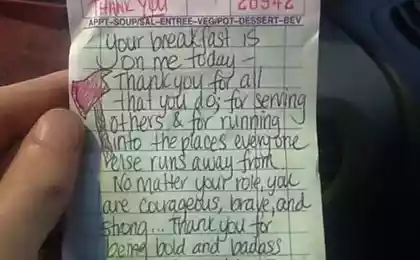 THANK YOU
26942
APPT-SOUP/SAL-ENTREE-VEG/POT-DESSERT-BEV
your breakfast is
on me today -
Thank you for all
that you do; for serving
others & for running
into the places everyone
else runs away from
No matter your role, you
are courageous, brave, and
strong... Thank you for
being bold and badass